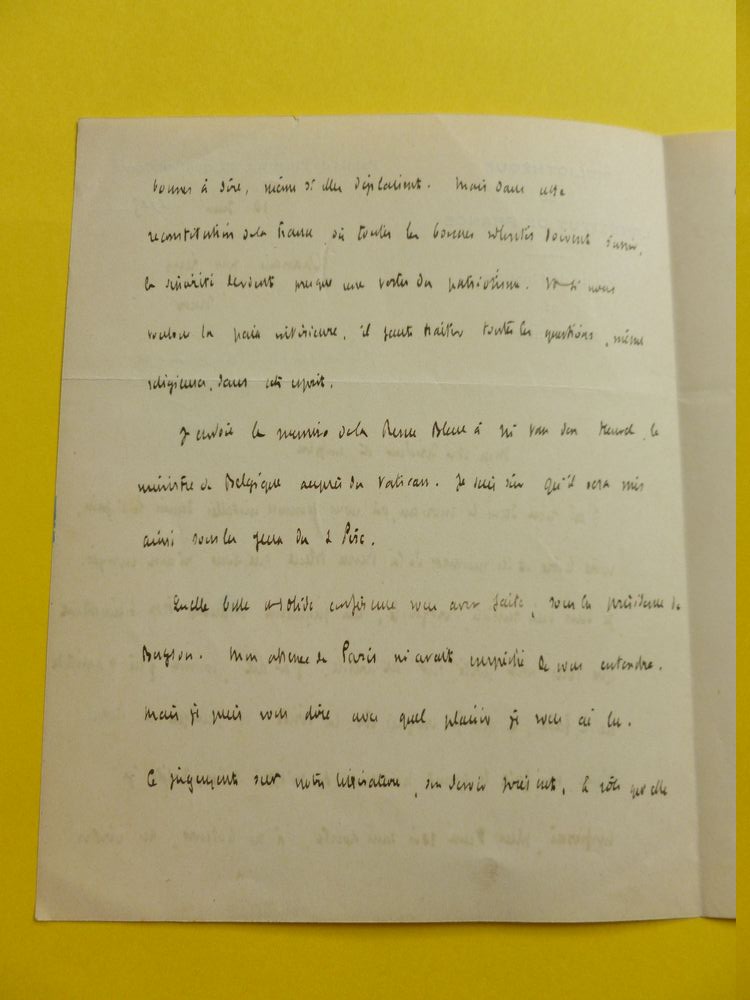 bonnes à dire, même si elles déplaisent. Mais dans cette
reconstitution de la France où toutes les bonnes volontés doivent s'unir,
la sincérité devient presque une vertu du patriotisme. Et si nous
voulons la paix intérieure, il faut traiter toutes les questions, même
religieuses, dans cet esprit.
J'envoie le numéro de la Revue Bleue à M van den Heuvel, le
ministre de Belgique auprès du Vatican. Je suis sûr qu'il sera mis
ainsi sous les yeux du S Père.
Quelle belle et solide conférence vous avez faite, sous la présidence de
Bergson. Mon absence de Paris m'avait empêché de vous entendre.
Mais je puis vous dire avec quel plaisir je vous ai lu.
Ce jugement sur notre littérature, son devoir présent, le rôle qu'elle